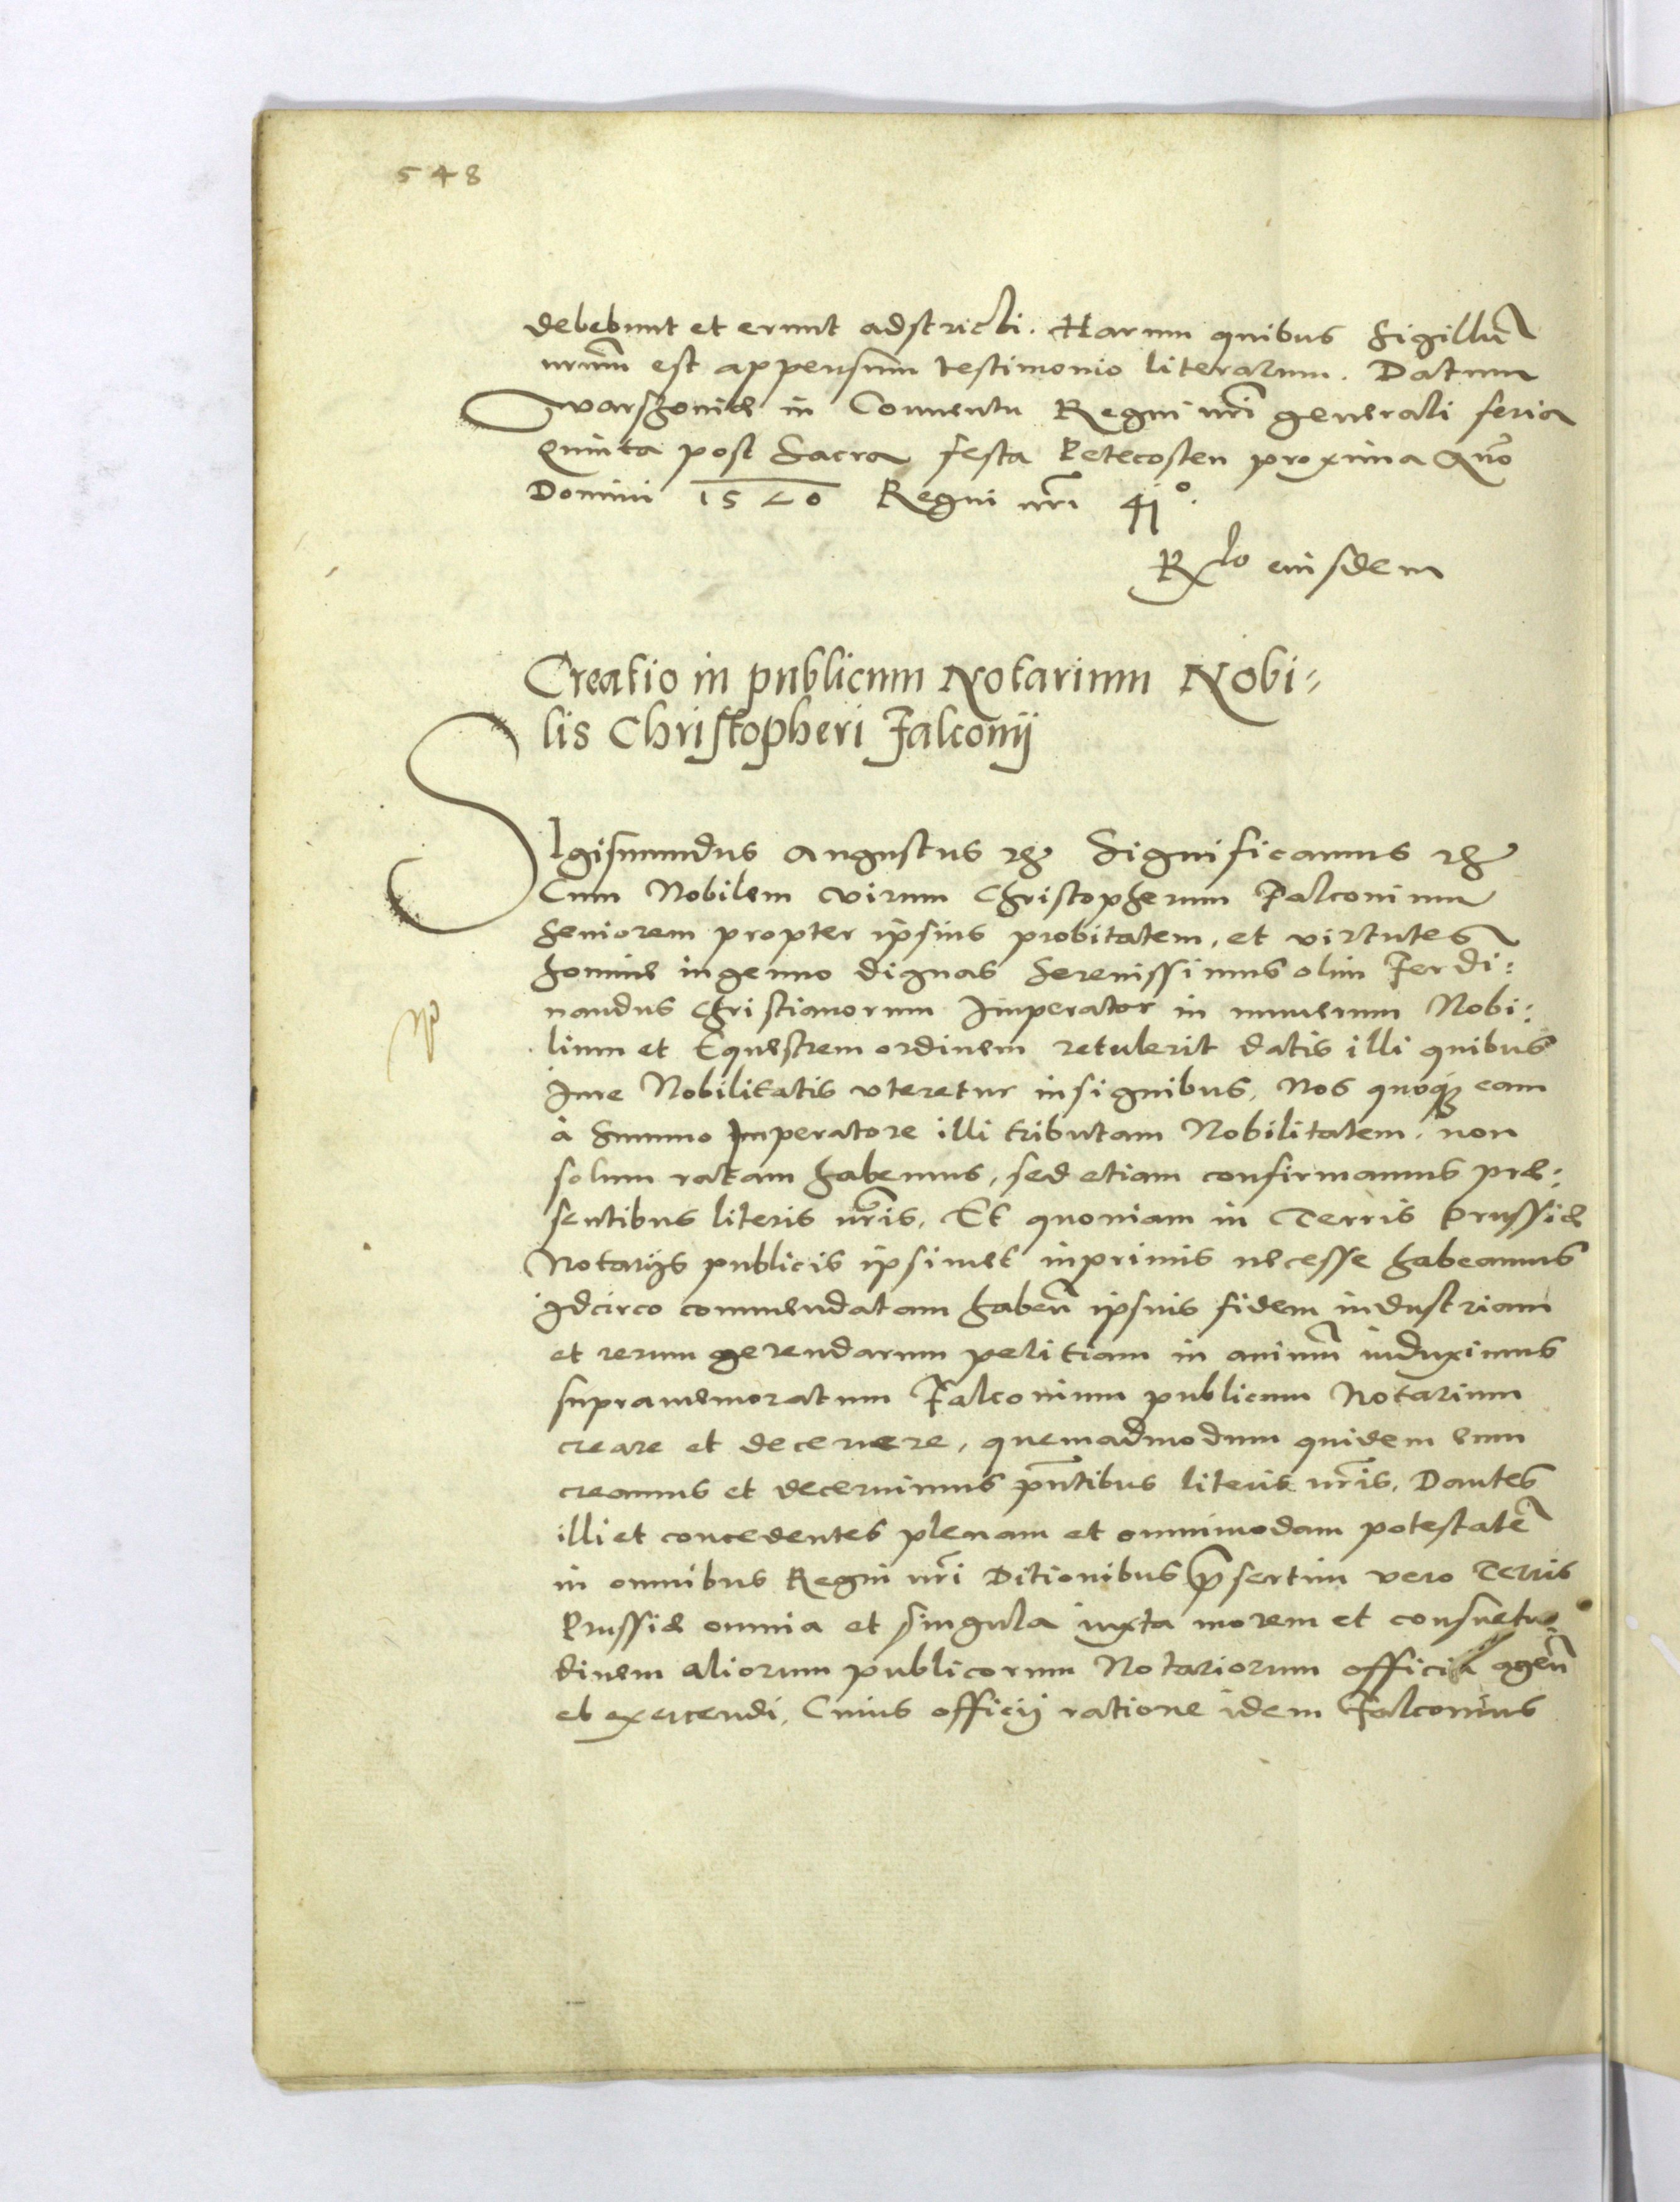 548
debebunt et erunt adstricti. Harum quibus Sigillũ
nrũm est appensum testimonio literarum. Datum
Warschoviæ in Conventu Regni nrĩ generali feria
Quinta post Sacra festa Petecosten proxima Anõ
Domini 1570 Regni nrĩ 41º.
Rlo eiusdem
Creatio in publicum Notarium Nobi=
lis Christopheri Falconij
SIgismundus Augustus etc Significamus etc
Cum Nobilem virum Christopherum Falconium
Seniorem propter ipsius probitatem, et virtutes
homine ingenuo dignas Serenissimus olim Ferdi:
nandus Christianorum Imperator in numerum Nobi:
lium et Equestrem ordinem retulerit datis illi quibus
Jure Nobilitatis uteretur insignibus, Nos quoque eam
à summo Imperatore illi tributam Nobilitatem, non
solum ratam habemus, sed etiam confirmamus præ:
sentibus literis nrĩs, Et quoniam in Terris Prussiæ
Notarijs publicis ipsimet inprimis necesse habeamus
Idcirco commendatam habeñ ipsius fidem industriam
et rerum gerendarum pelitiam in animũ induximus
supramemoratum Falconium publicum Notarium
creare et decernere, quemadmodum quidem eum
creamus et decernimus pñtibus literis nrĩs, Dantes
illi et concedentes plenam et omnimodam potestatẽ
in omnibus Regni nrĩ Ditionibus p̃sertim vero Terris
Prussiæ omnia et singula iuxta morem et consuetu:
dinem aliorum publicorum Notariorum officia ageñ
et exercendi, Cuius officij ratione idem Falconius